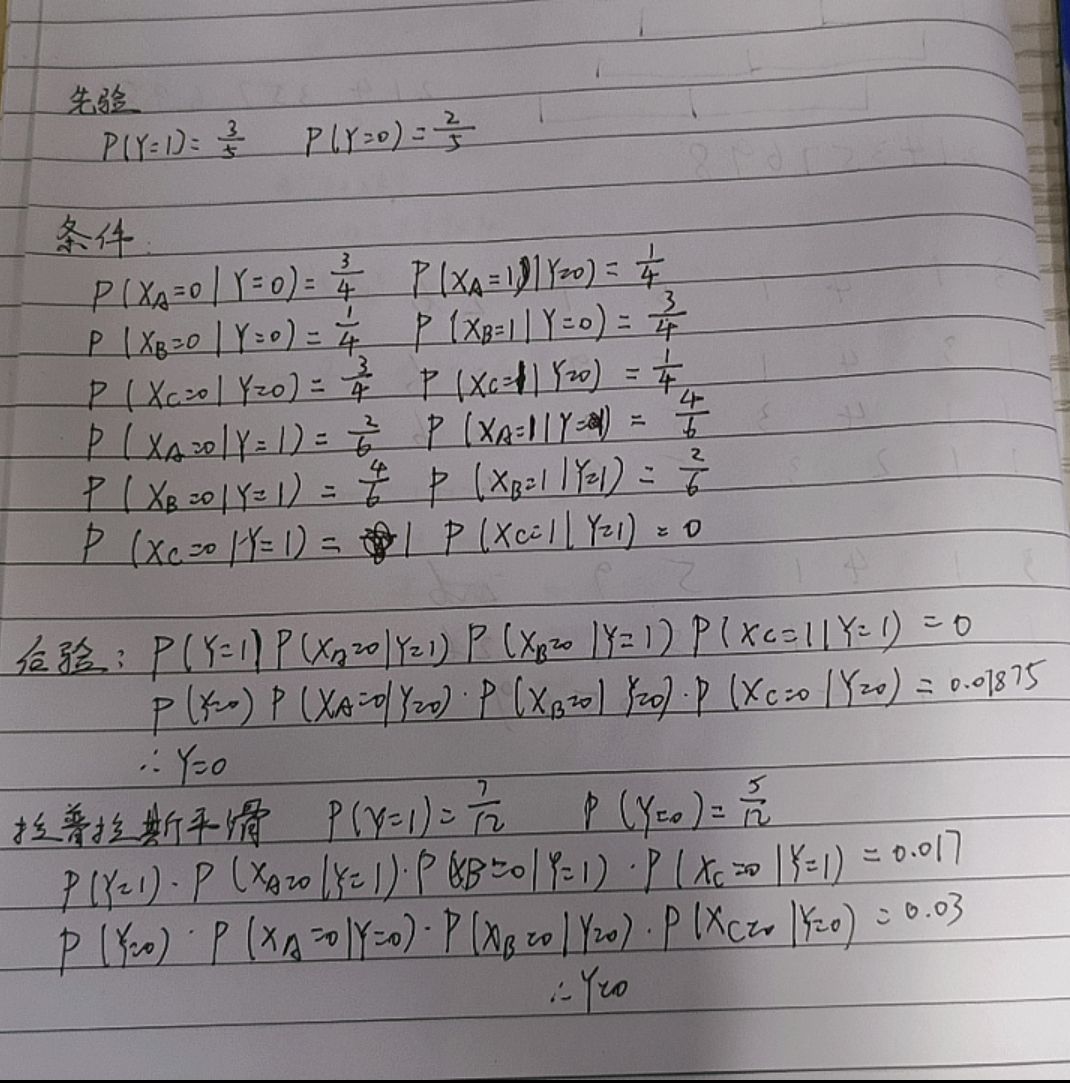 先验
P(Y=1)=3/5 P(Y=0)=2/5
条件:
P(XA=0|Y=0)=3/4 P(XA=1|Y=0)=1/4
P(XB=0|Y=0)=1/4 P(XB=1|Y=0)=3/4
P(XC=0|Y=0)=3/4 P(XC=1|Y=0)=1/4
P(XA=0|Y=1)=2/6 P(XA=1|Y=1)=4/6
P(XB=0|Y=1)=4/6 P(XB=1|Y=1)=2/6
P(XC=0|Y=1)=1 P(XC=1|Y=1)=0
后验: P(Y=1)P(XA=0|Y=1)P(XB=0|Y=1)P(XC=1|Y=1)=0
P(Y=0)P(XA=0|Y=0)·P(XB=0|Y=0)·P(XC=0|Y=0)=0.01875
∴Y=0
拉普拉斯平滑 P(Y=1)=7/12 P(Y=0)=5/12
P(Y=1)·P(XA=0|Y=1)·P(XB=0|Y=1)·P(XC=0|Y=1)=0.017
P(Y=0)·P(XA=0|Y=0)·P(XB=0|Y=0)·P(XC=0|Y=0)=0.03
∴Y=0